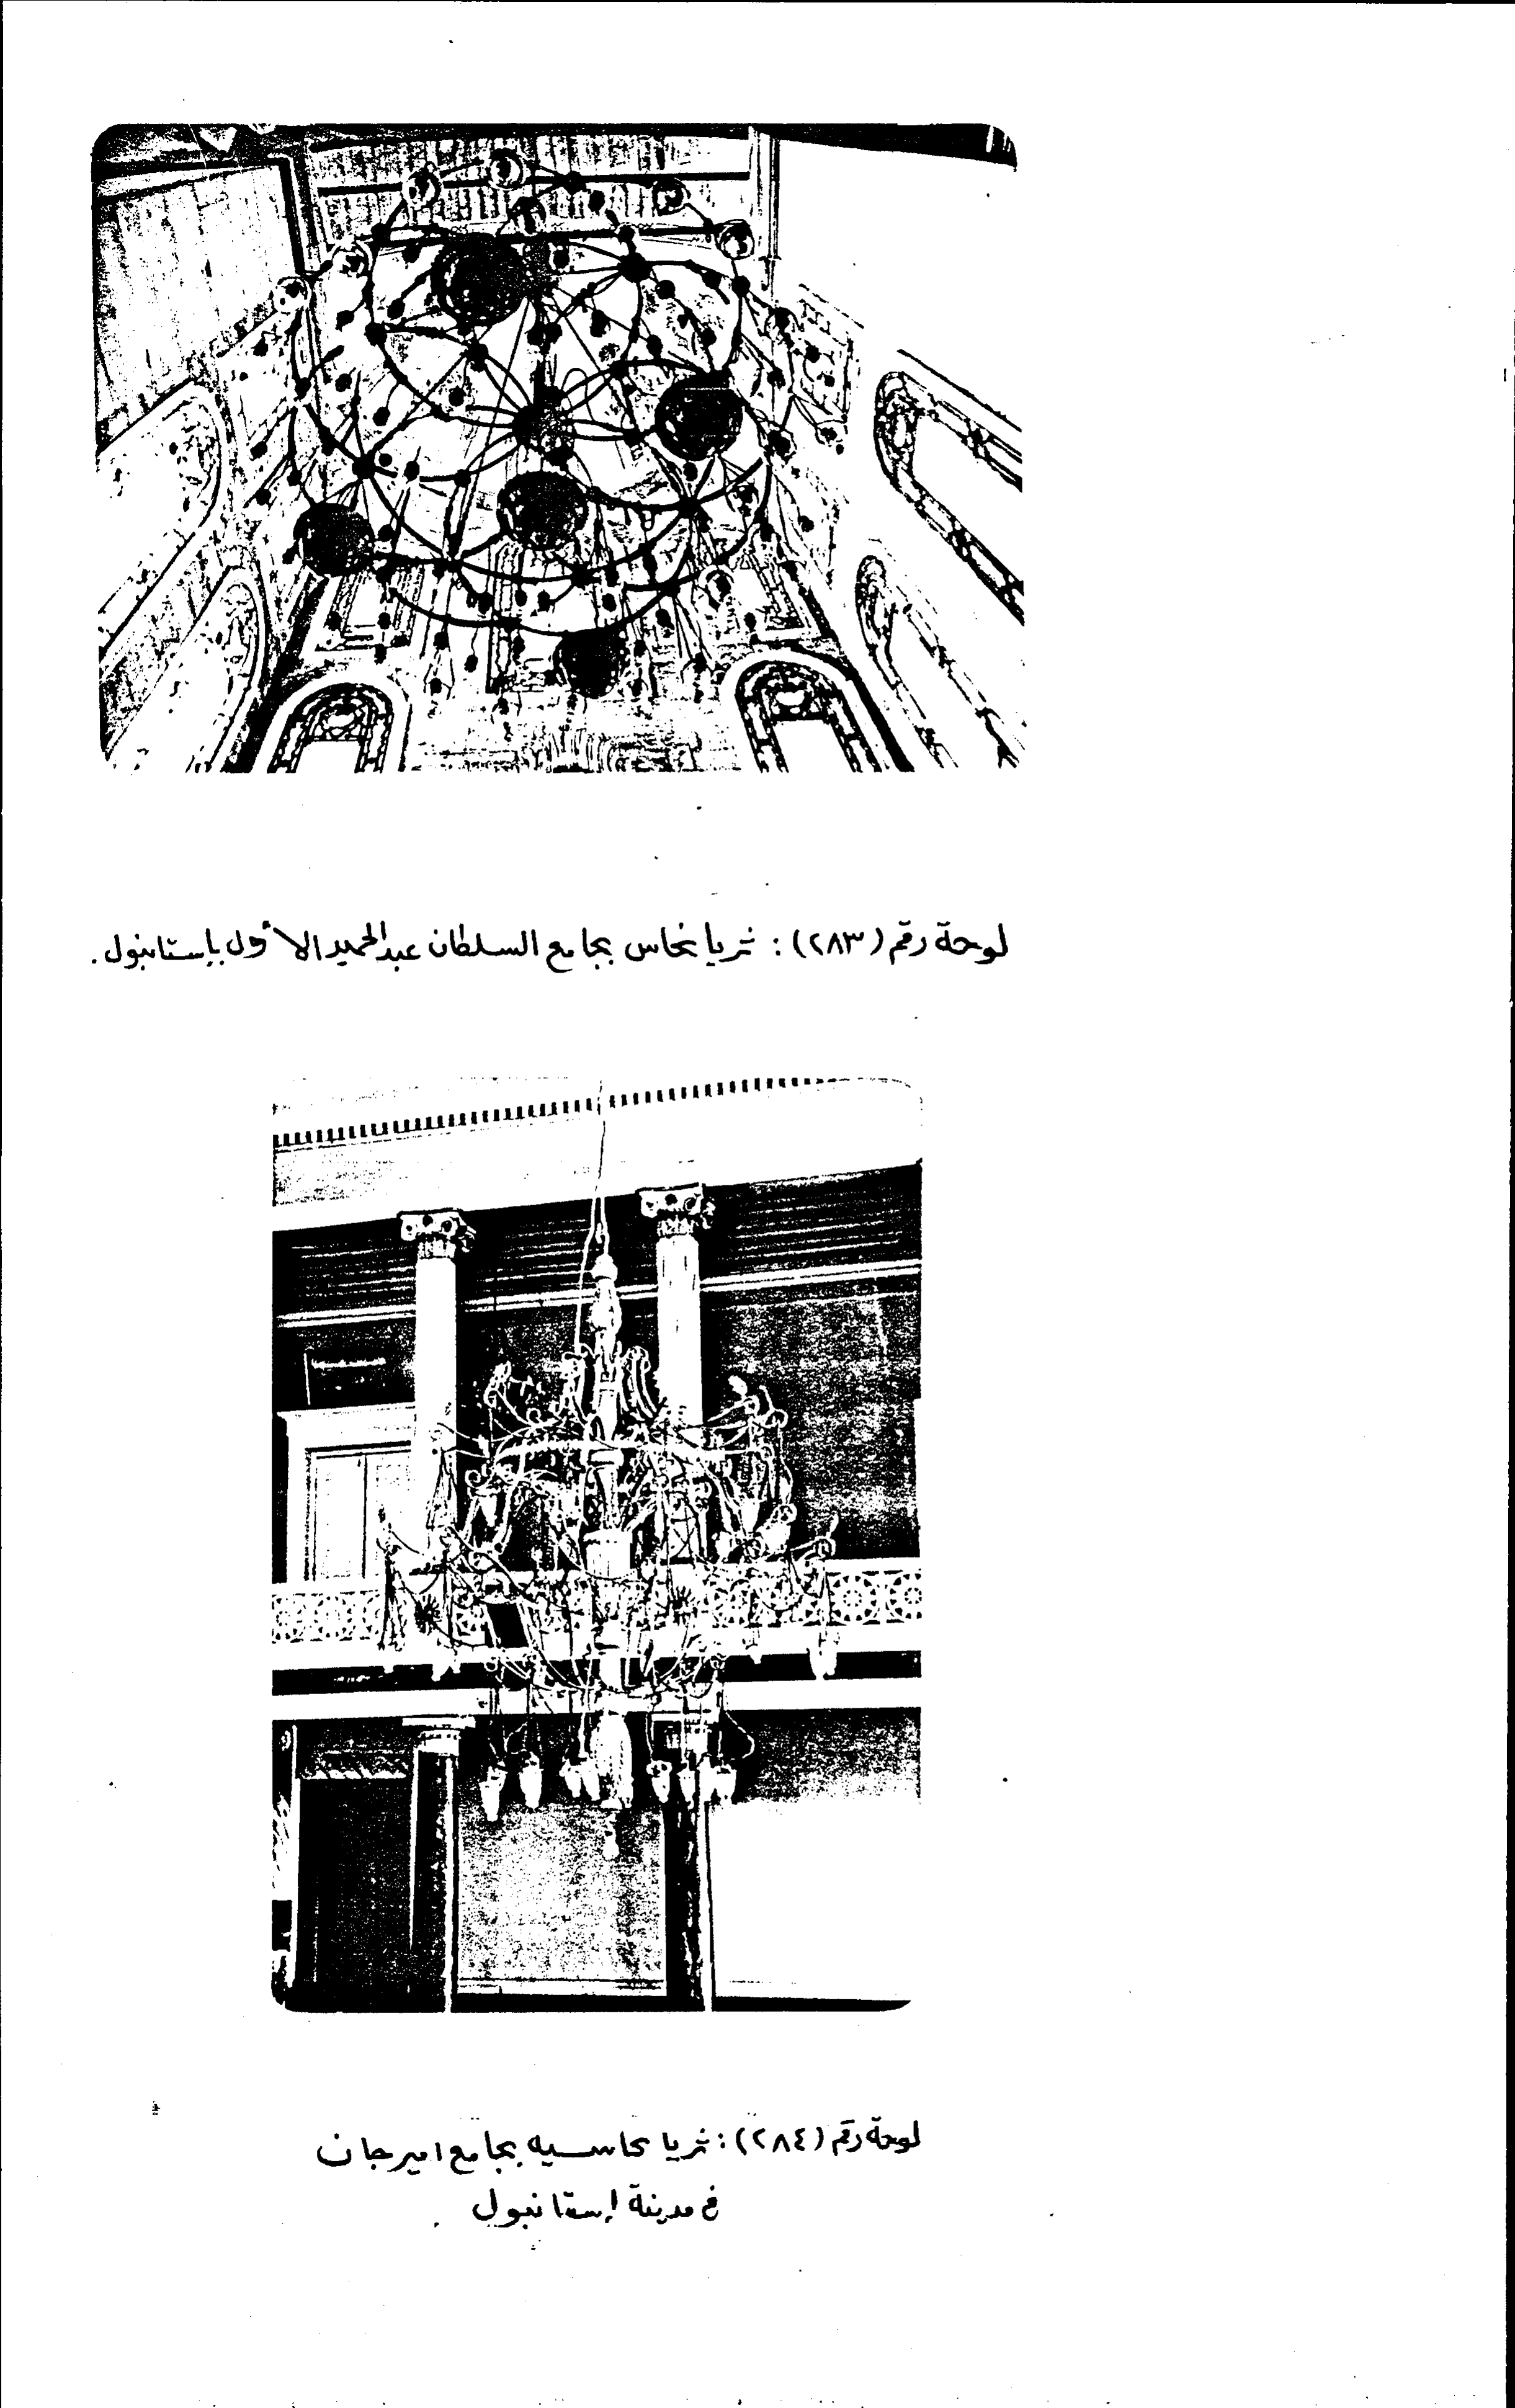 لوحة رقم (٢٨٣) : ثريا نحاس بجامع السلطان عبدالحميد الأول بإستانبول .
لوحة رقم (٢٨٤) : ثريا نحاسيه بجامع اميرجان
في مدينة إستانبول